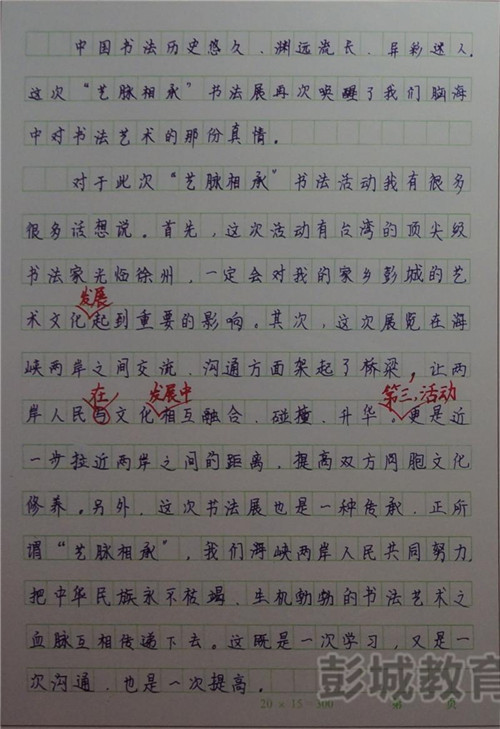 中国书法历史悠久、渊远流长、异彩迷人,
这次“艺脉相承”书法展再次唤醒了我们脑海
中对书法艺术的那份真情。
对于此次“艺脉相承”书法活动我有很多
很多话想说。首先,这次活动有台湾的顶尖级
书法家光临徐州,一定会对我的家乡彭城的艺
发展
术文化起到重要的影响。其次,这次展览在海
峡两岸之间交流、沟通方面架起了桥梁,让两
在 发展中 第三,活动
岸人民与文化相互融合、碰撞、升华。更是近
一步拉近两岸之间的距离,提高双方同胞文化
修养。另外,这次书法展也是一种传承,正所
谓“艺脉相承”,我们海峡两岸人民共同努力
把中华民族永不枯竭、生机勃勃的书法艺术之
血脉互相传递下去。这既是一次学习,又是一
次沟通,也是一次提高。
彭城教育
20 × 15 = 300 第 页